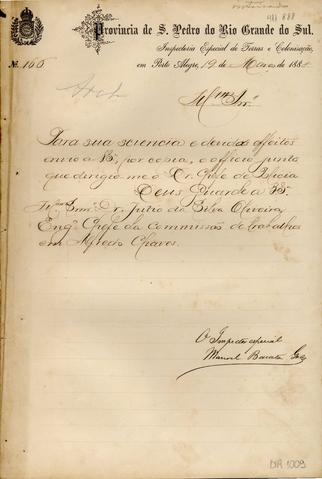 Provincia de S. Pedro do Rio Grande do Sul.
Inspectoria Especial de Terras e Colonisação,
Nº 166
em Porto Alegre, 19 de Março de 188
Illmo Snr
Para sua sciencia e devidos effeitos
envio a VS., por copia, o officio junto
que dirigio-me o Dr. Chefe de Policia
Deus Guarde a VS.
Illmo Snr. Dr. Julio da Silva Oliveira
Engº Chefe da Commissão de trabalhos
em Alfredo Chaves.
O Inspector especial
Manoel Barata
DIR 1009